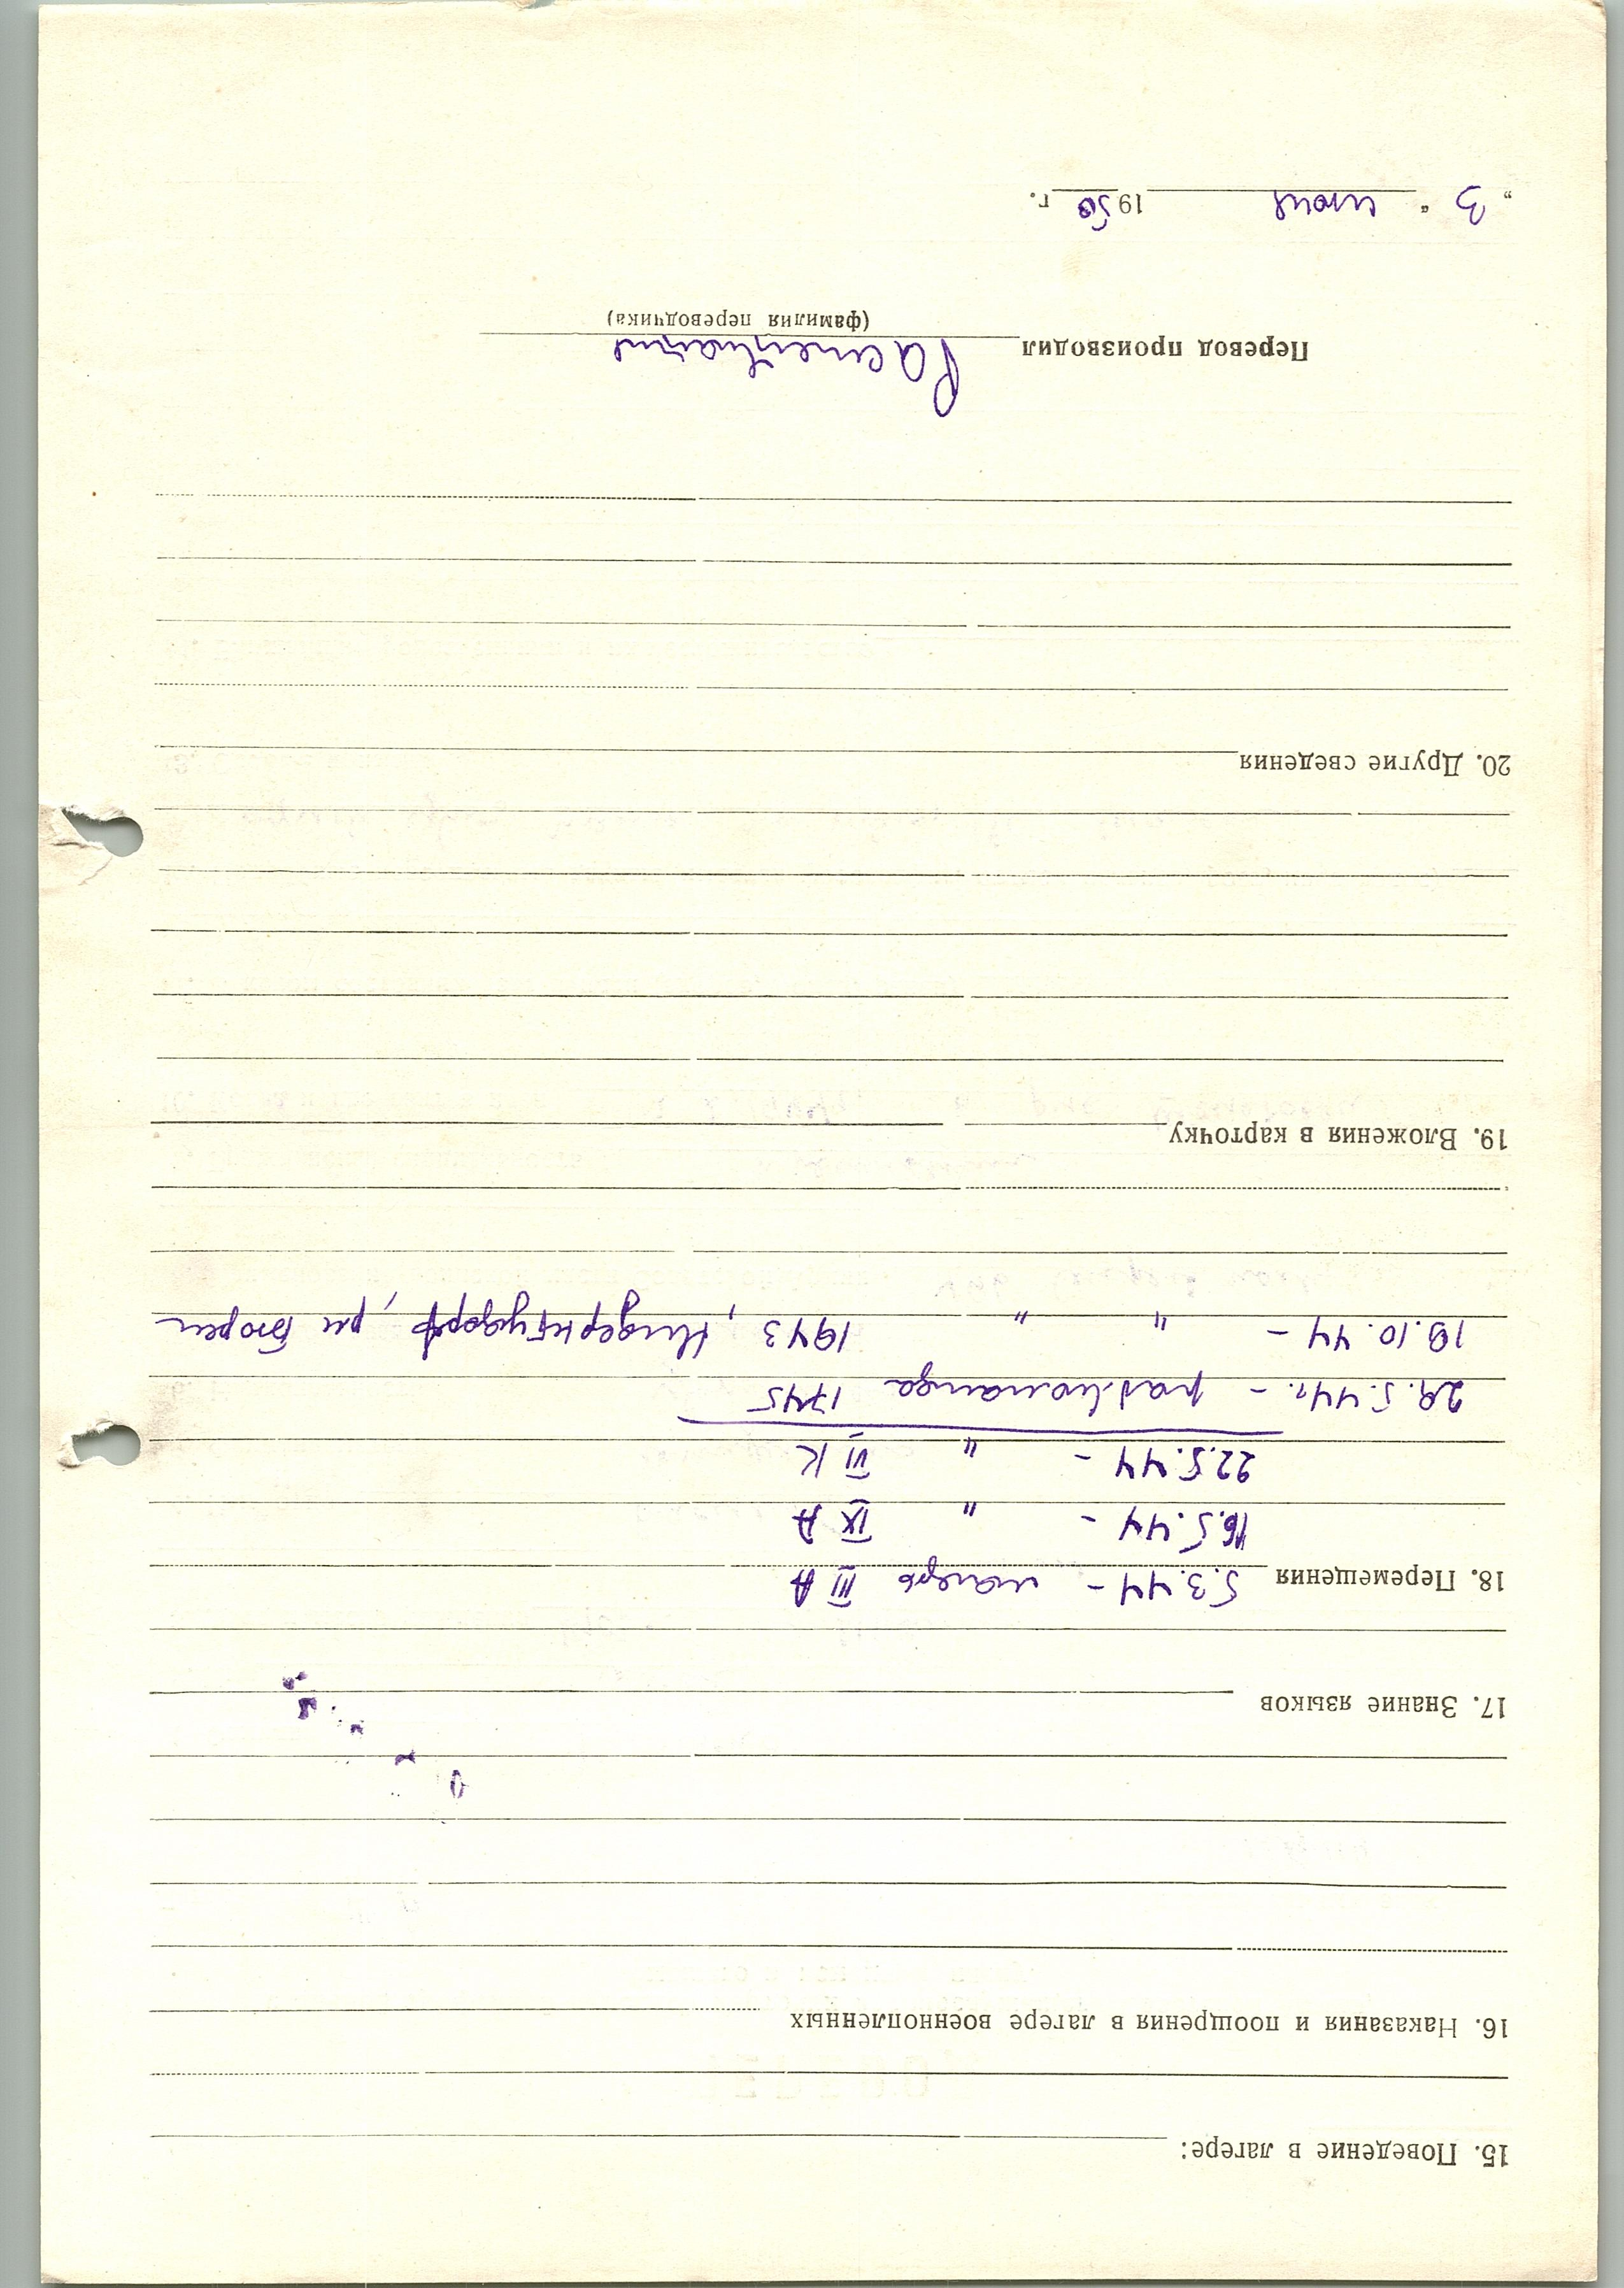 15. Поведение в лагере:
16. Наказания и поощрения в лагере военнопленных
17. Знание языков
18. Перемещения 5.3.44 – лагерь III А
16.5.44 – " IX А
22.5.44 – " VI К
29.5.44г. – раб/команда 1745
10.44 – " " 1943, рн Бюрен
19. Вложения в карточку
20. Другие сведения
Перевод производил
(фамилия переводчика)
„3“ 1950 г.